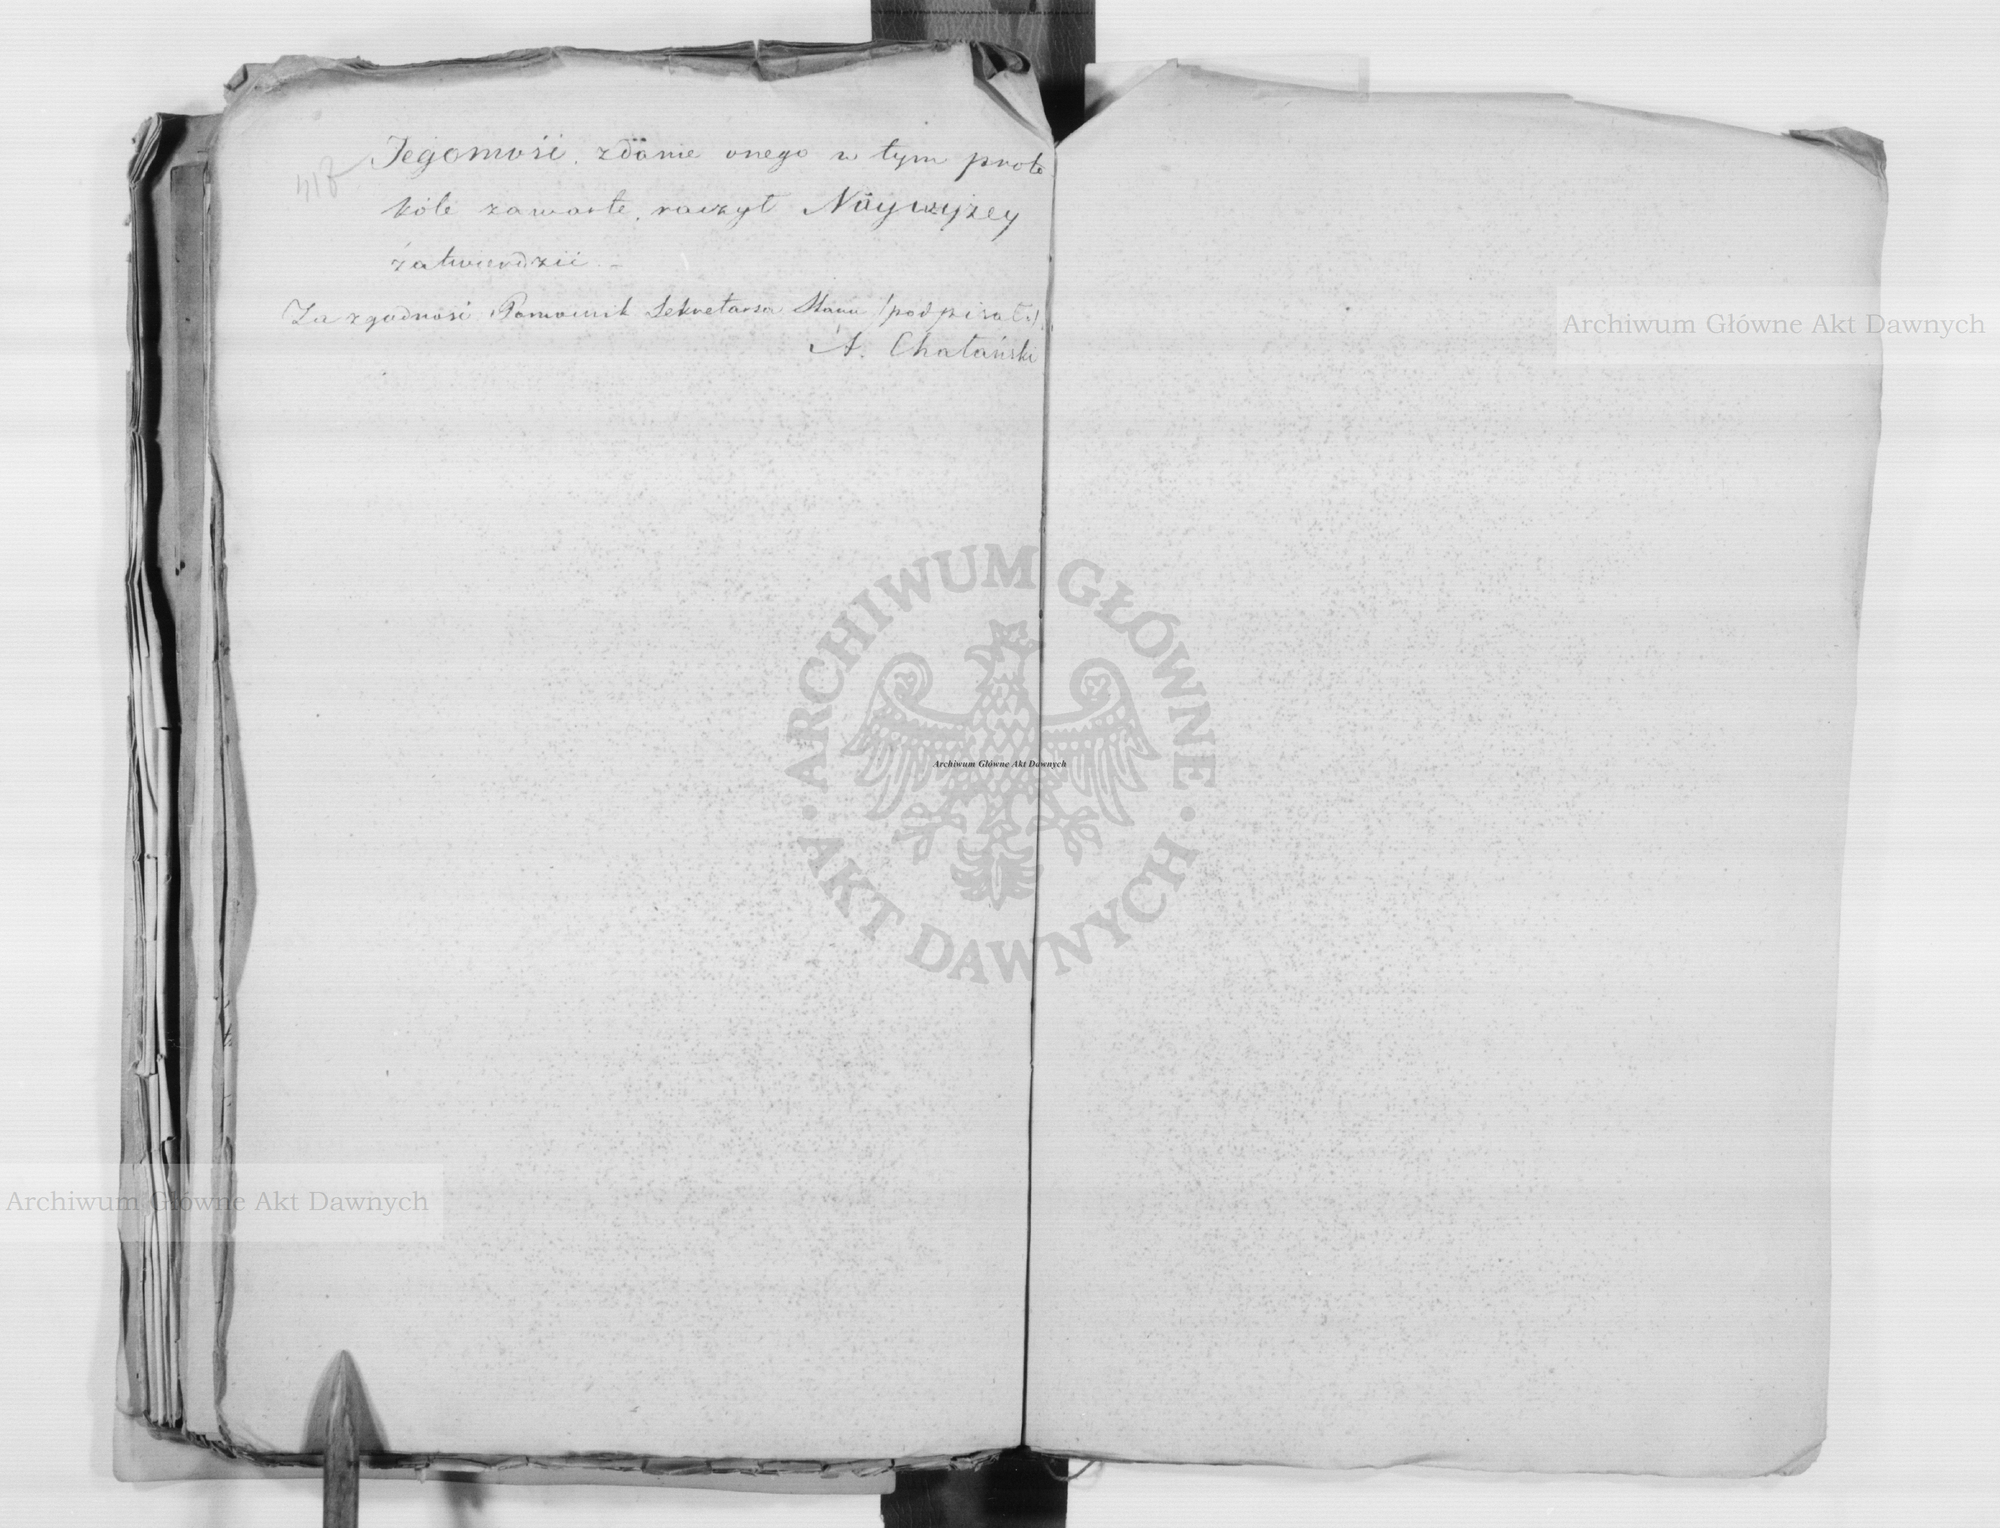 418
Jegomość zdanie onego w tym proto
kóle zawarte, raczył Naywyżey
zatwierdzić. –
Za zgodność Pomocnik Sekretarza Stanu /podpisał/
A. Chałański
Archiwum Główne Akt Dawnych
ARCHIWUM GŁÓWNE
AKT DAWNYCH
Archiwum Główne Akt Dawnych
Archiwum Główne Akt Dawnych